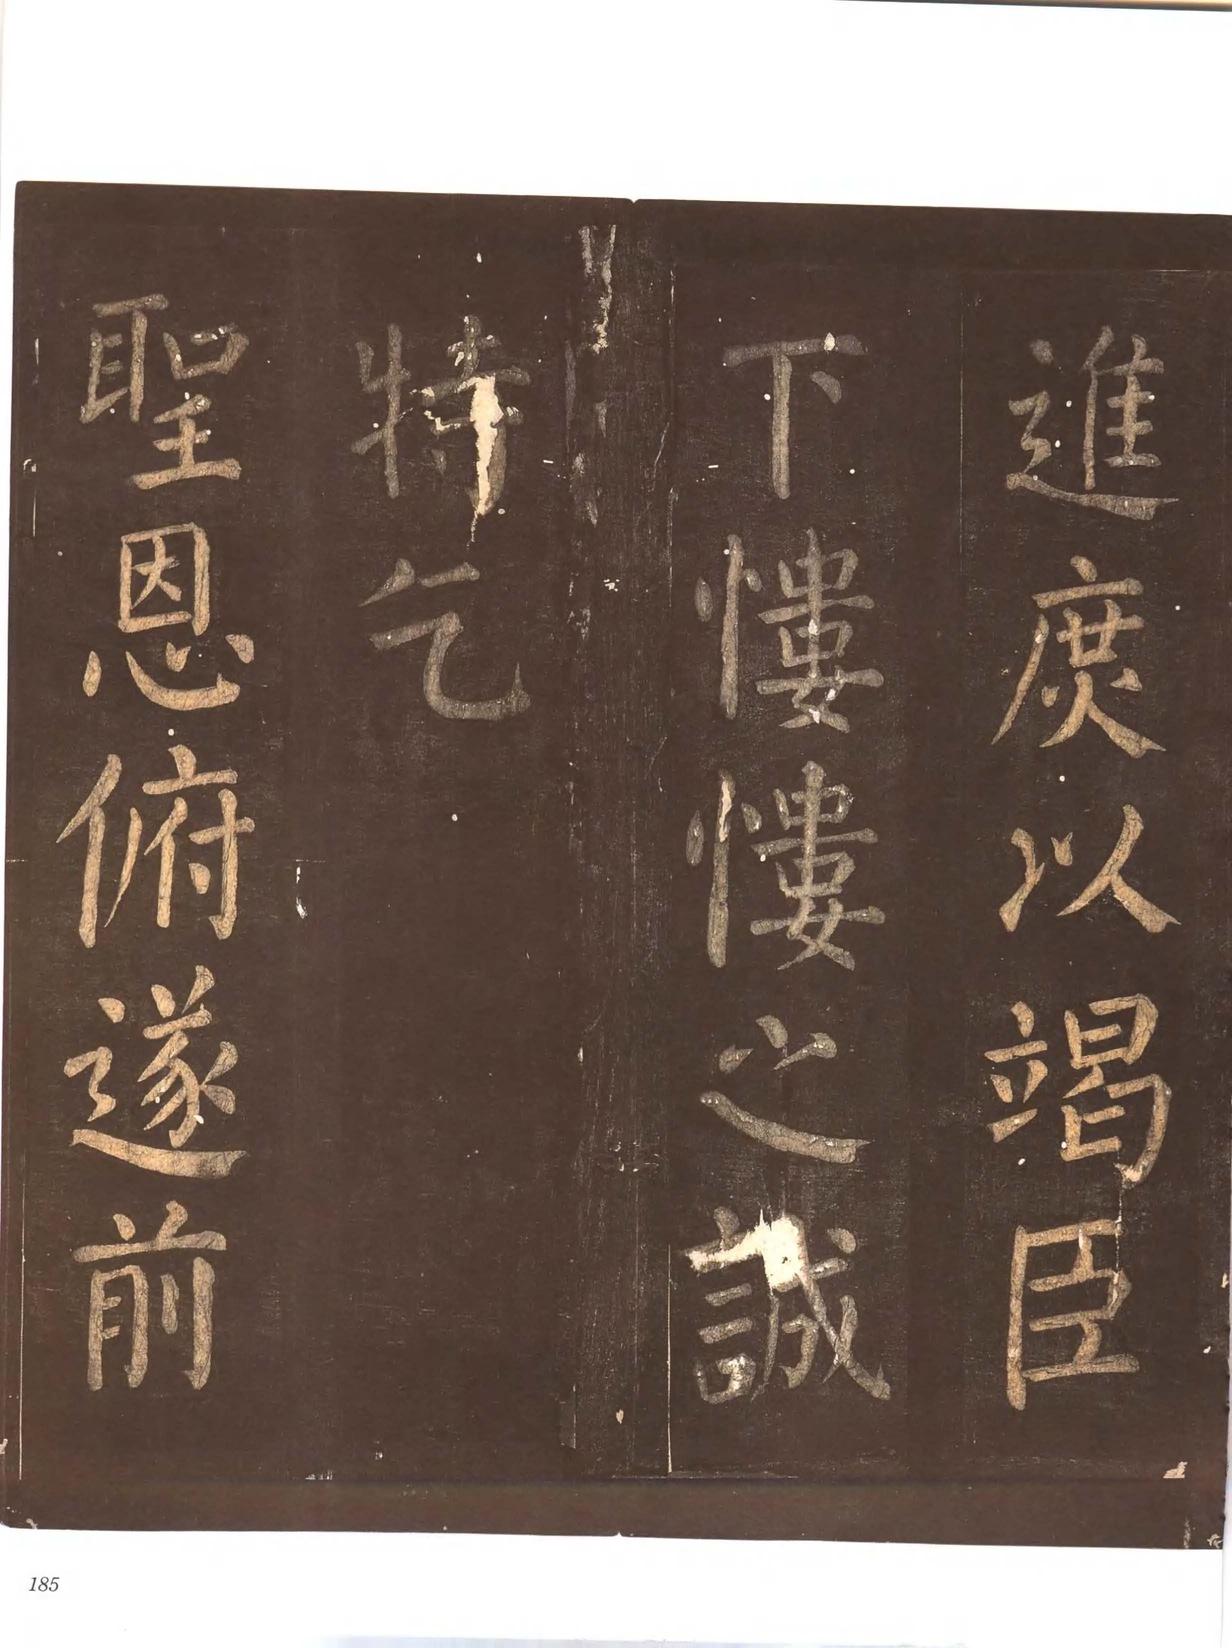 進庻以竭臣
下慺慺之誠
特乞
聖恩俯遂前
185